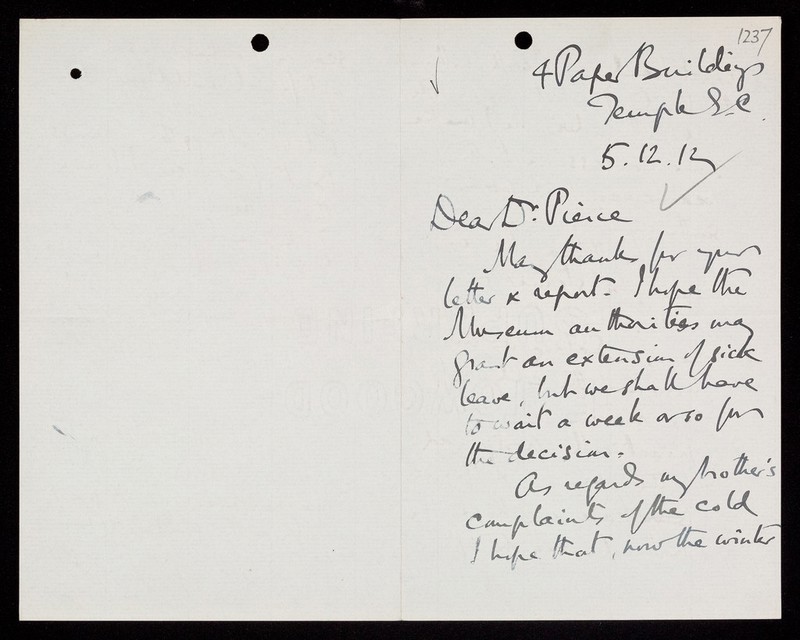 1237
4 Paper Buildings
Temple E.C.
5.12.12
Dear Dr. Pierce
Many thanks for your
letter & report. I hope the
Museum authorities may
grant an extension of sick
leave, but we shall have
to wait a week or so for
the decision.
As regards my brother's
complaints of the cold
I hope that, now the winter